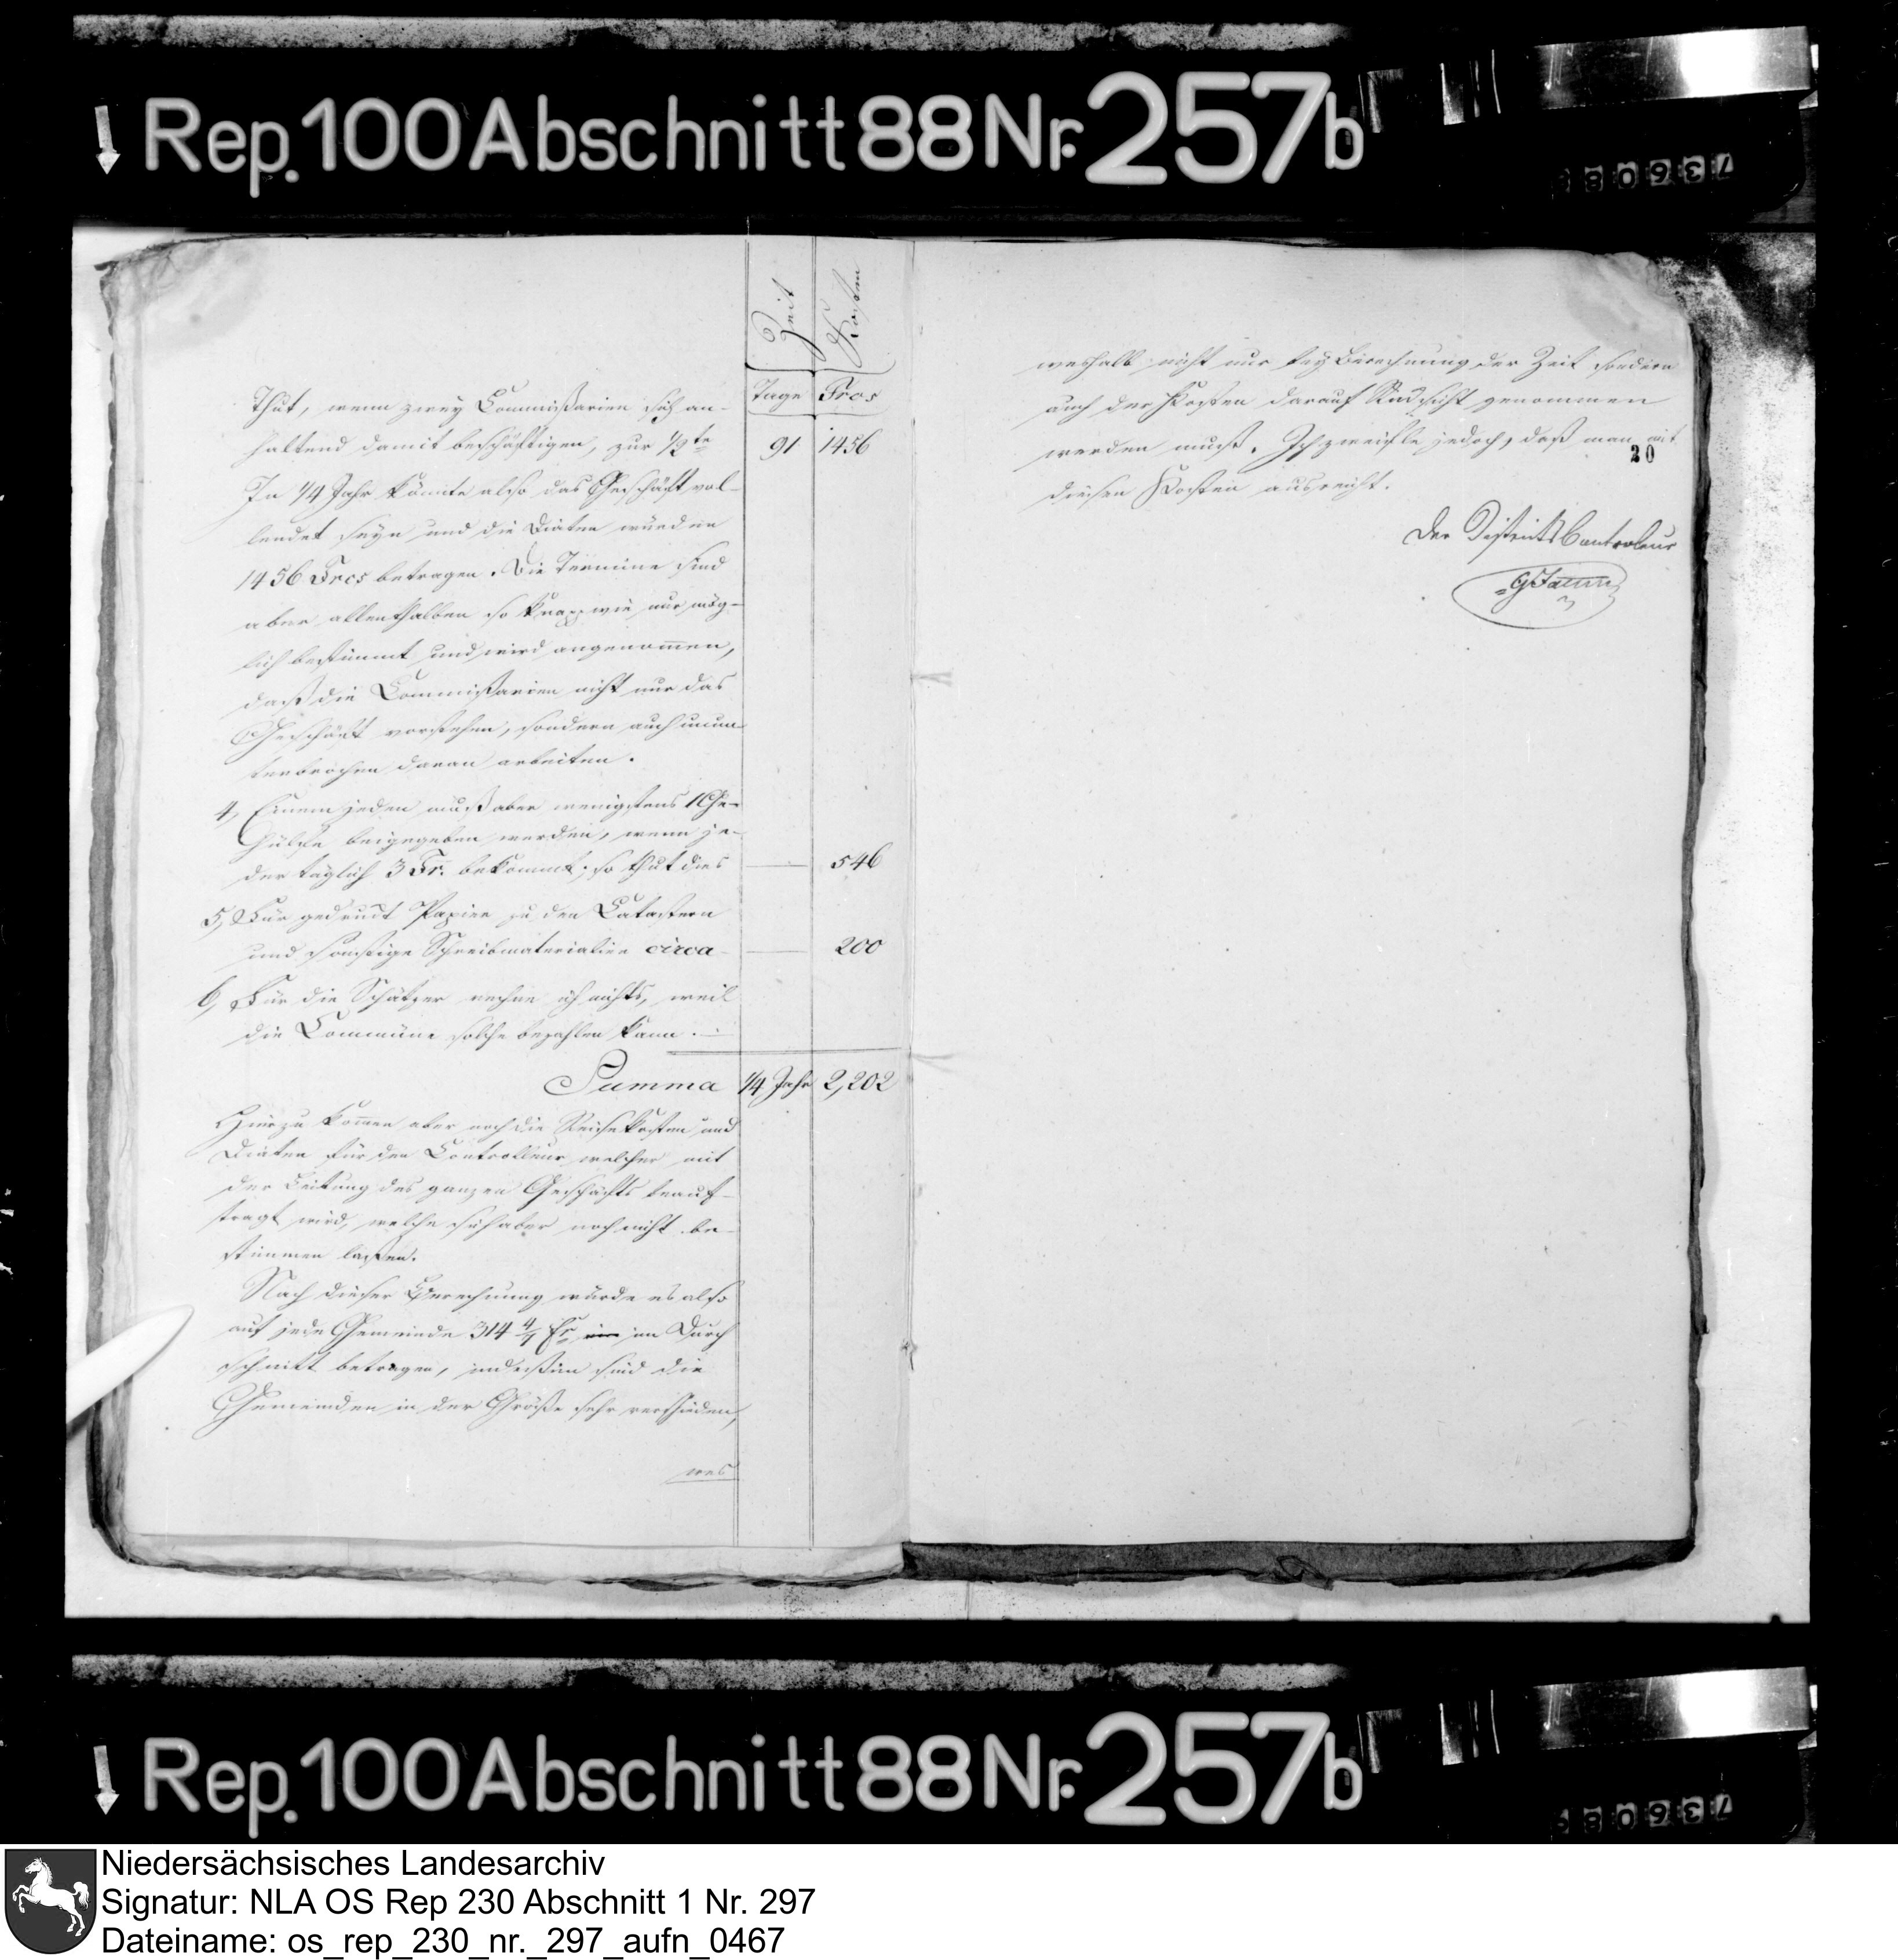 Rep. 100 Abschnitt 88 Nr. 257b
736086
Zeit
Kosten
Tage Frcs
Thut, wenn zwey Commißarien sich an-
haltend damit beschäftigen, zur 1/2te 91 1456
In 1/4 Jahr könnte also das Geschäft vol-
lendet seyn und die Diäten würden
1456 Frcs betragen. Die Termine sind
aber allenthalben so knapp wie nur mög-
lich bestimmt und wird angenommen,
daß die Commißarien nicht nur das
Geschäft vorstehen, sondern auch unun-
terbrochen daran arbeiten.
4, Einem jeden muß aber wenigstens 1 Ge-
hülfe beigegeben werden, wenn je-
der täglich 3 Fr. bekommt, so thut dies — 546
5, Für gedruckt Papier zu den Catastern
und sonstige Schreibmaterialien circa — 200
6, Für die Schätzer rechne ich nichts, weil
die Commüne solche bezahlen kann. —
Summa 1/4 Jahr 2,202
Hierzu kommen aber noch die Reisekosten und
Diäten für den Controlleur welcher mit
der Leitung des ganzen Geschäfts beauf-
tragt wird, welche sich aber noch nicht be-
stimmen laßen.
Nach dieser Berechnung würde es also
auf jede Gemeinde 314 4/7 Fr im Durch
schnitt betragen, indeßen sind die
Gemeinden in der Größe sehr verschieden,
wes
weshalb nicht nur bey Berechnung der Zeit sondern
auch der Kosten darauf Rücksicht genommen
werden muß. Ich zweifle jedoch, daß man mit
20
diesen Kosten ausreicht.
Der Districts Controleur
Rep. 100 Abschnitt 88 Nr. 257b
736086
Niedersächsisches Landesarchiv
Signatur: NLA OS Rep 230 Abschnitt 1 Nr. 297
Dateiname: os_rep_230_nr._297_aufn_0467